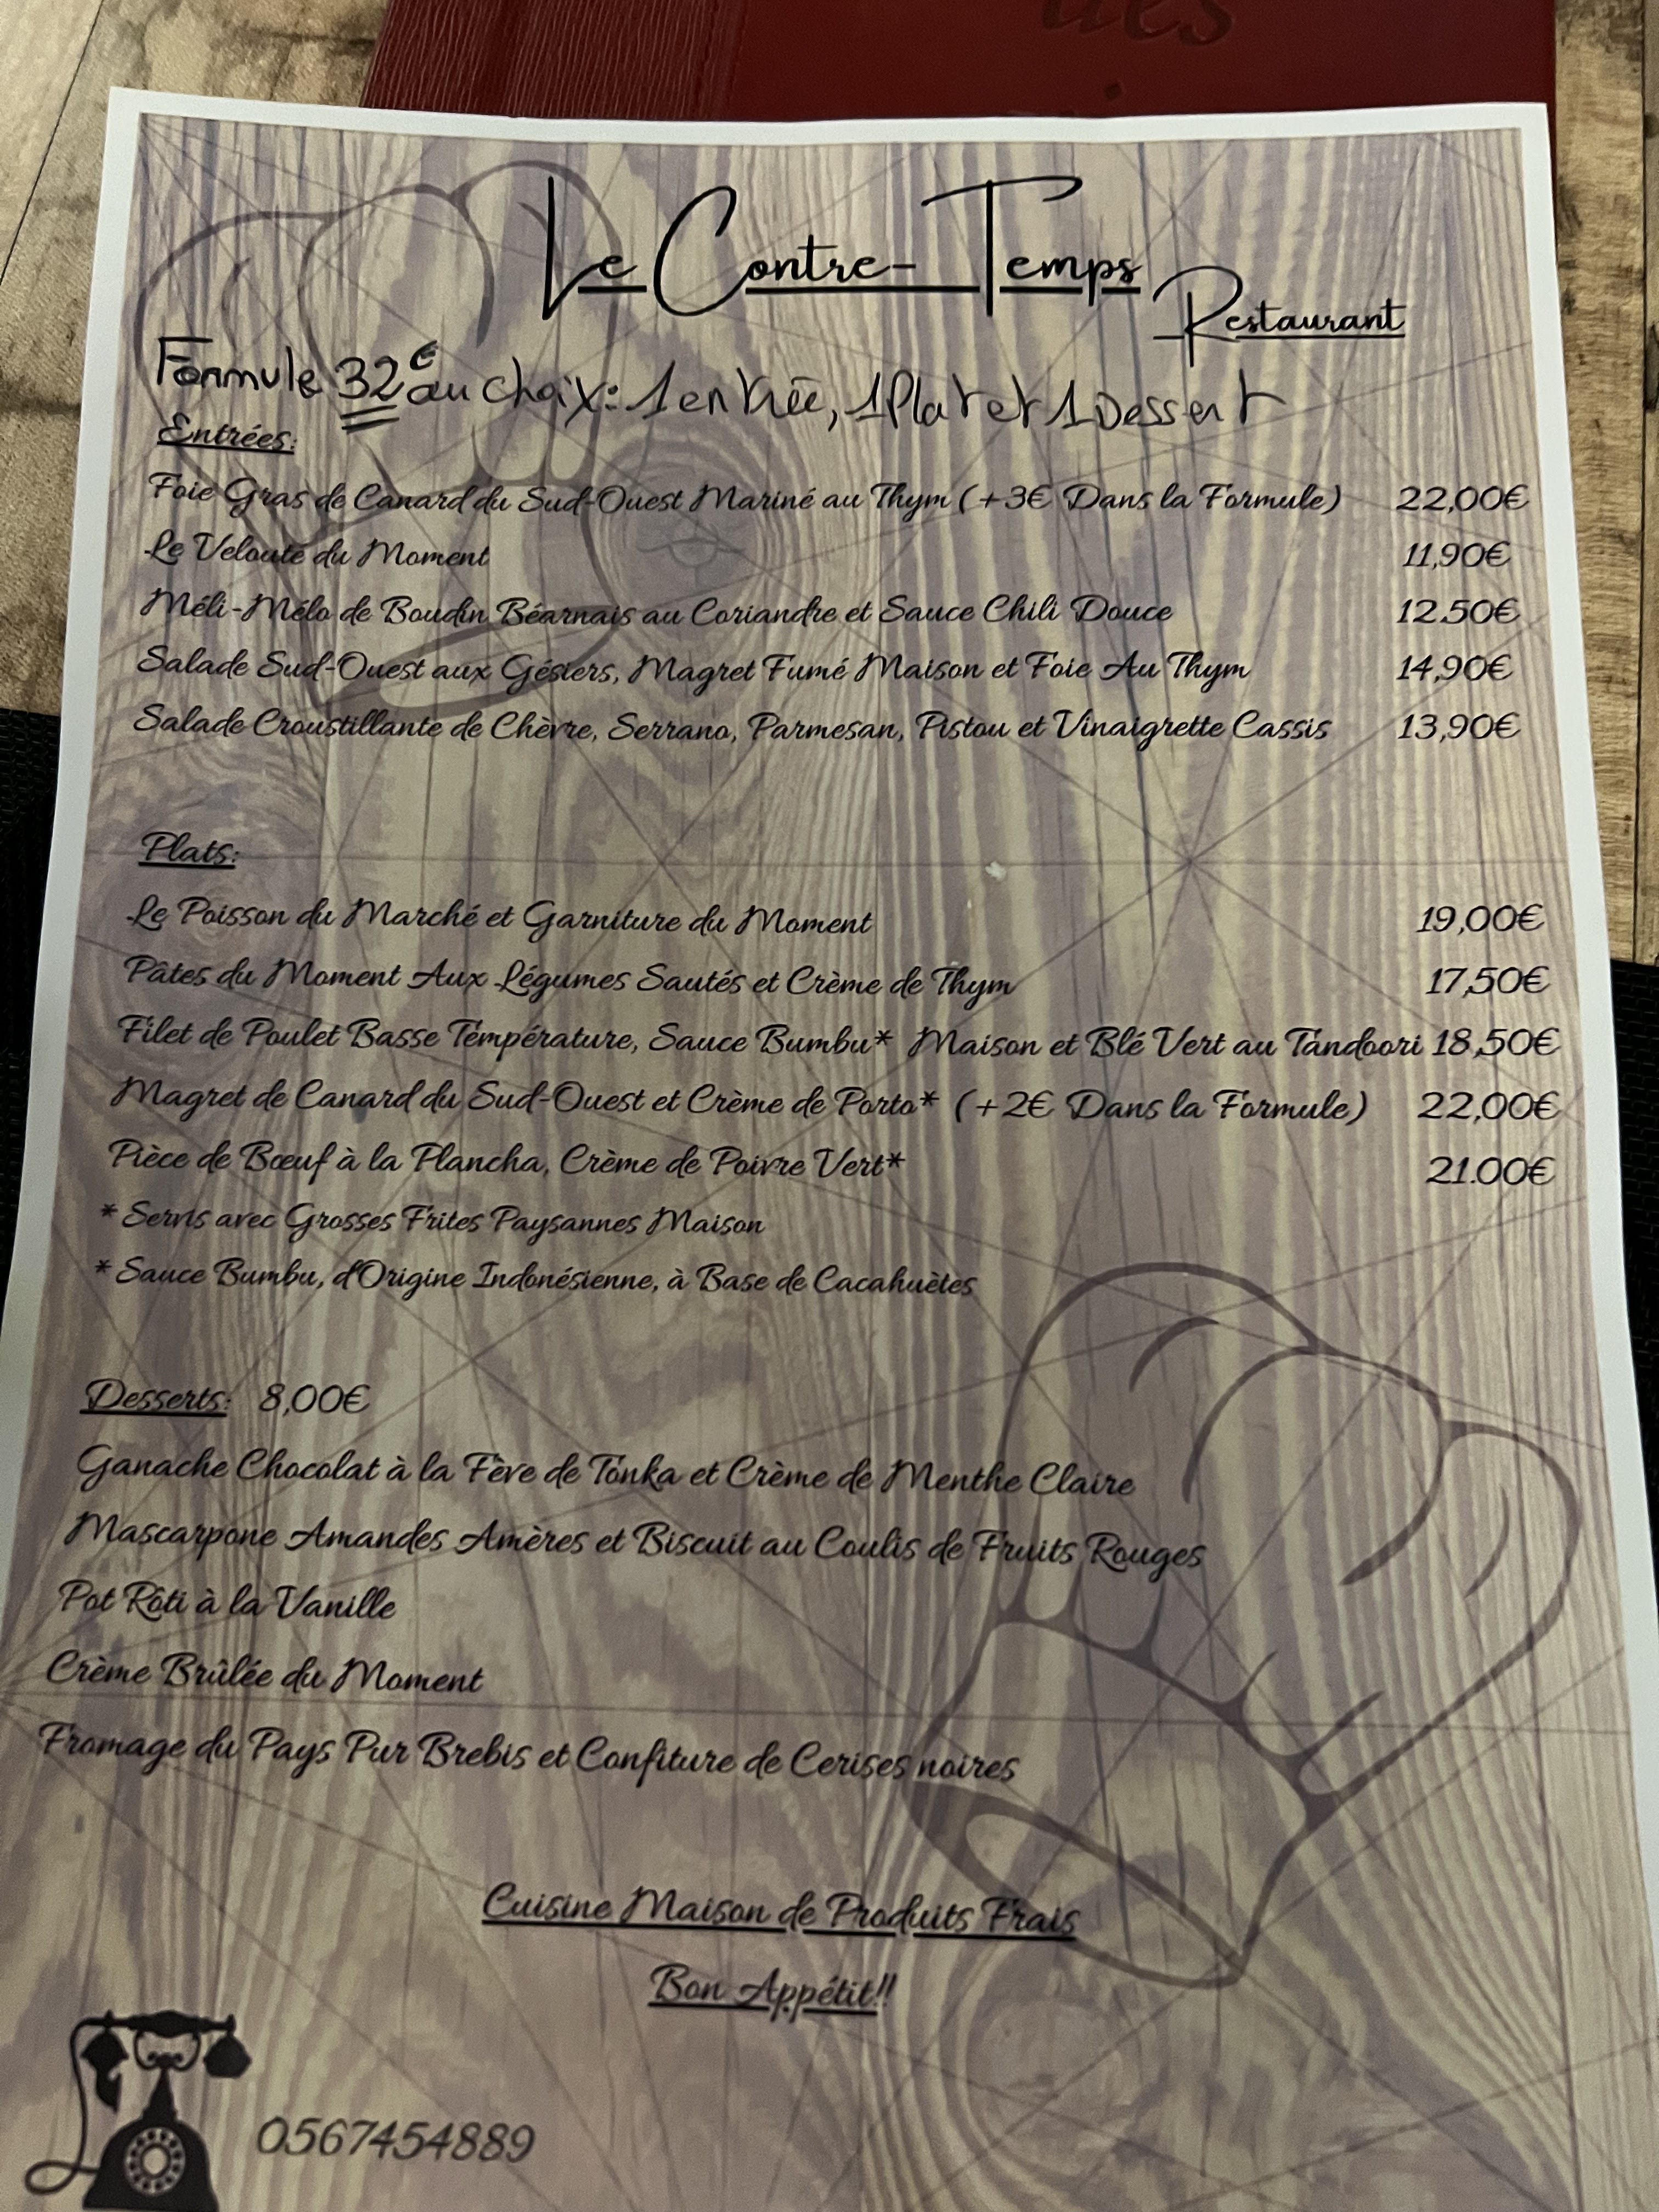 des
Le Contre-Temps
Restaurant
Formule 32€ au choix: 1 entrée, 1 Plat et 1 Dessert
Entrées:
Foie Gras de Canard du Sud-Ouest Mariné au Thym (+3€ Dans la Formule) 22,00€
Le Velouté du Moment 11,90€
Méli-Mélo de Boudin Béarnais au Coriandre et Sauce Chili Douce 12.50€
Salade Sud-Ouest aux Gésiers, Magret Fumé Maison et Foie Au Thym 14,90€
Salade Croustillante de Chèvre, Serrano, Parmesan, Pistou et Vinaigrette Cassis 13,90€
Plats:
Le Poisson du Marché et Garniture du Moment 19,00€
Pâtes du Moment Aux Légumes Sautés et Crème de Thym 17,50€
Filet de Poulet Basse Température, Sauce Bumbu* Maison et Blé Vert au Tandoori 18,50€
Magret de Canard du Sud-Ouest et Crème de Porto* (+2€ Dans la Formule) 22,00€
Pièce de Bœuf à la Plancha, Crème de Poivre Vert* 21.00€
* Servis avec Grosses Frites Paysannes Maison
* Sauce Bumbu, d'Origine Indonésienne, à Base de Cacahuètes
Desserts: 8,00€
Ganache Chocolat à la Fève de Tonka et Crème de Menthe Claire
Mascarpone Amandes Amères et Biscuit au Coulis de Fruits Rouges
Pot Rôti à la Vanille
Crème Brûlée du Moment
Fromage du Pays Pur Brebis et Confiture de Cerises noires
Cuisine Maison de Produits Frais
Bon Appétit!!
0567454889